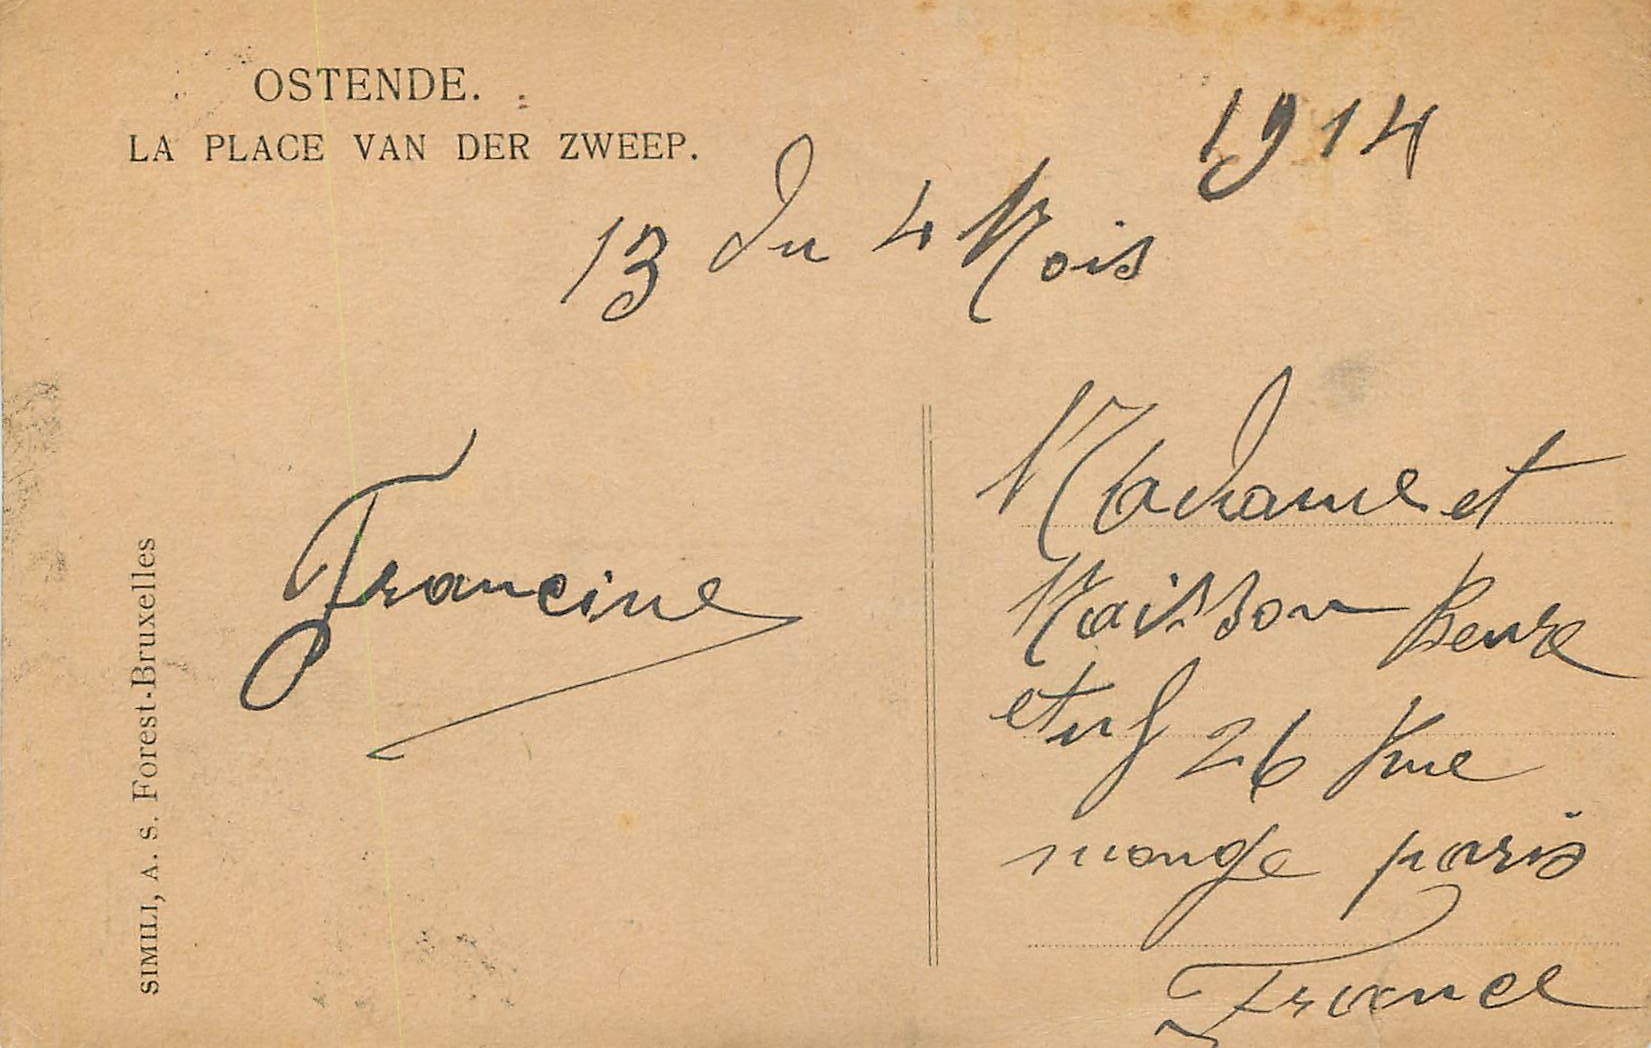 OSTENDE.
LA PLACE VAN DER ZWEEP.
1914
13 du 4 Mois
Francine
SIMILI, A. S. Forest-Bruxelles
Madame et
Maisson Beure
et uf 26 Rue
monge paris
France